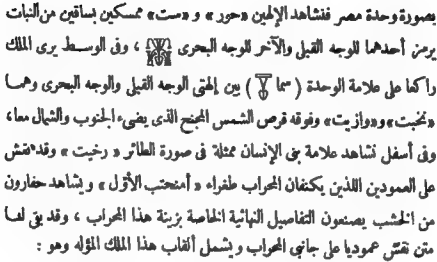 بصورة وحدة مصر فنشاهد الإلهين «حور» و «ست» ممسكين بساقين من النبات
يرمز أحدهما للوجه القبلى والآخر للوجه البحرى ، وفى الوسط يرى الملك
راكعا على علامة الوحدة ( سما ) بين إلهتى الوجه القبلى والوجه البحرى وهما
«نخبت» و«وازيت» وفوقه قرص الشمس المجنح الذى يضىء الجنوب والشمال معا،
وفى أسفل نشاهد علامة بنى الإنسان ممثلة فى صورة الطائر «رخيت» وقد نقش
على العمودين اللذين يكنفان المحراب طغراء «أمنحتب الأول» ويشاهد حفارون
من الخشب يصنعون التفاصيل النهائية الخاصة بزينة هذا المحراب ، وقد بقى لنا
متن نقش عموديا على جانبى المحراب ويشمل ألقاب هذا الملك المؤله وهو :